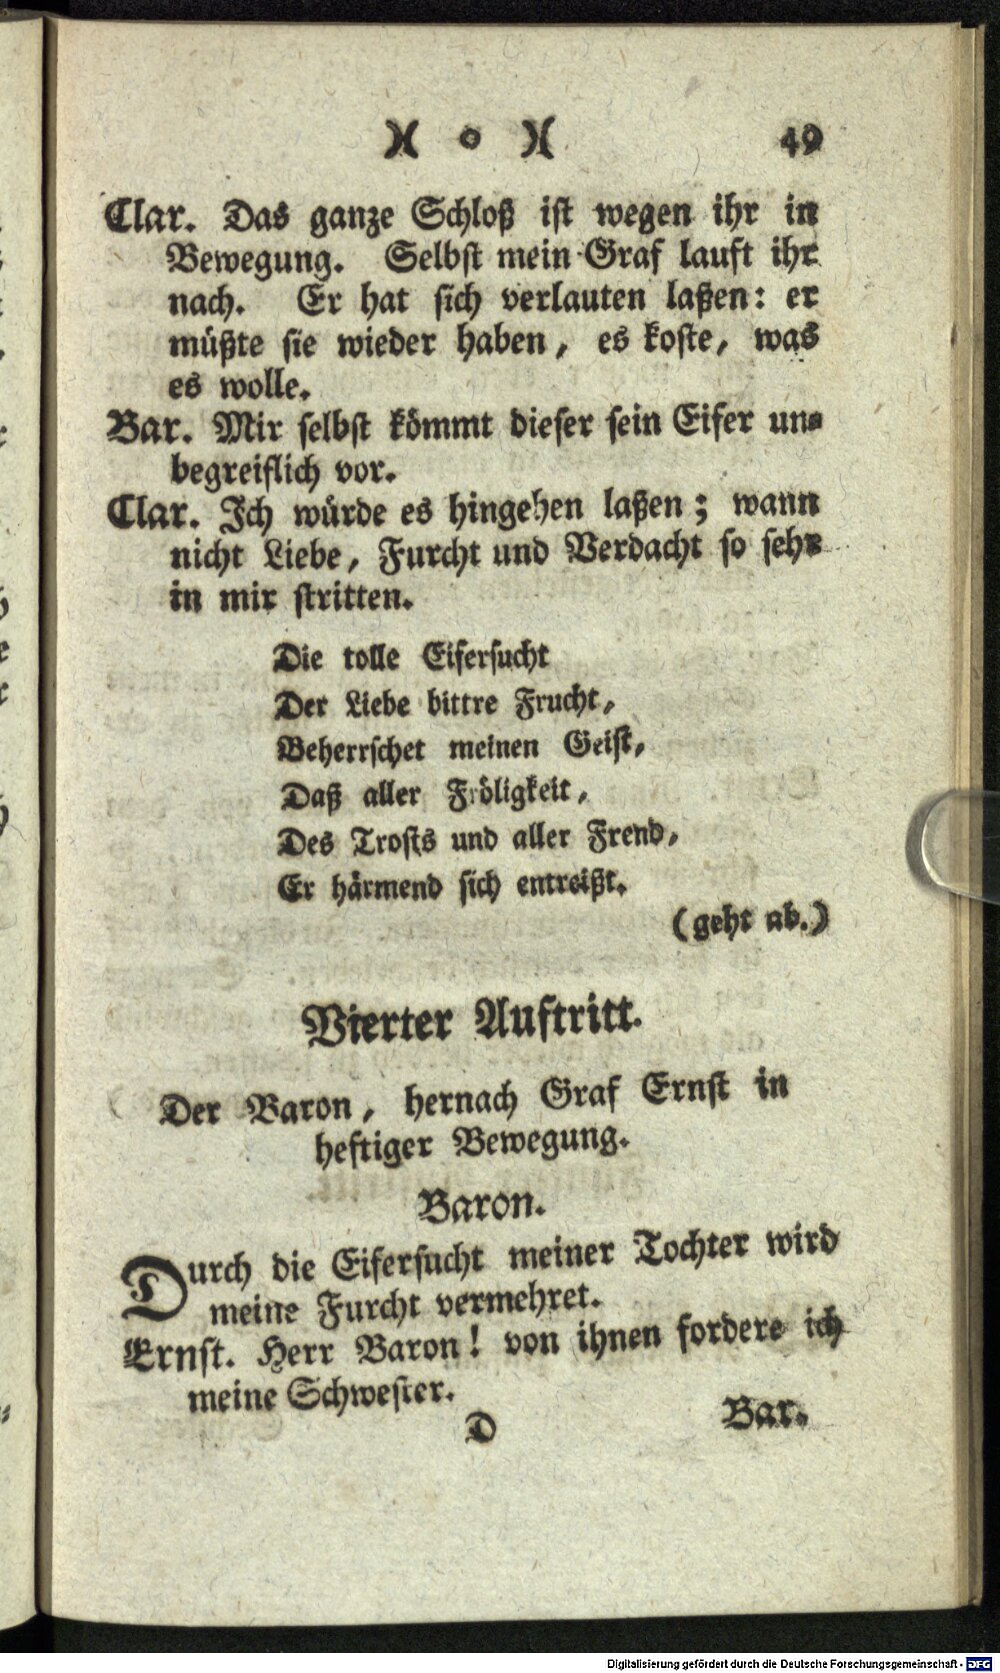 )( o )( 49
Clar. Das ganze Schloß ist wegen ihr in
Bewegung. Selbst mein Graf lauft ihr
nach. Er hat sich verlauten laßen: er
müßte sie wieder haben, es koste, was
es wolle.
Bar. Mir selbst kömmt dieser sein Eifer un-
begreiflich vor.
Clar. Ich würde es hingehen laßen; wann
nicht Liebe, Furcht und Verdacht so sehr
in mir stritten.
Die tolle Eifersucht
Der Liebe bittre Frucht,
Beherrschet meinen Geist,
Daß aller Fröligkeit,
Des Trosts und aller Frend,
Er härmend sich entreißt.
(geht ab.)
Vierter Auftritt.
Der Baron, hernach Graf Ernst in
heftiger Bewegung.
Baron.
Durch die Eifersucht meiner Tochter wird
meine Furcht vermehret.
Ernst. Herr Baron! von ihnen fordere ich
meine Schwester.
D Bar.
Digitalisierung gefördert durch die Deutsche Forschungsgemeinschaft - DFG